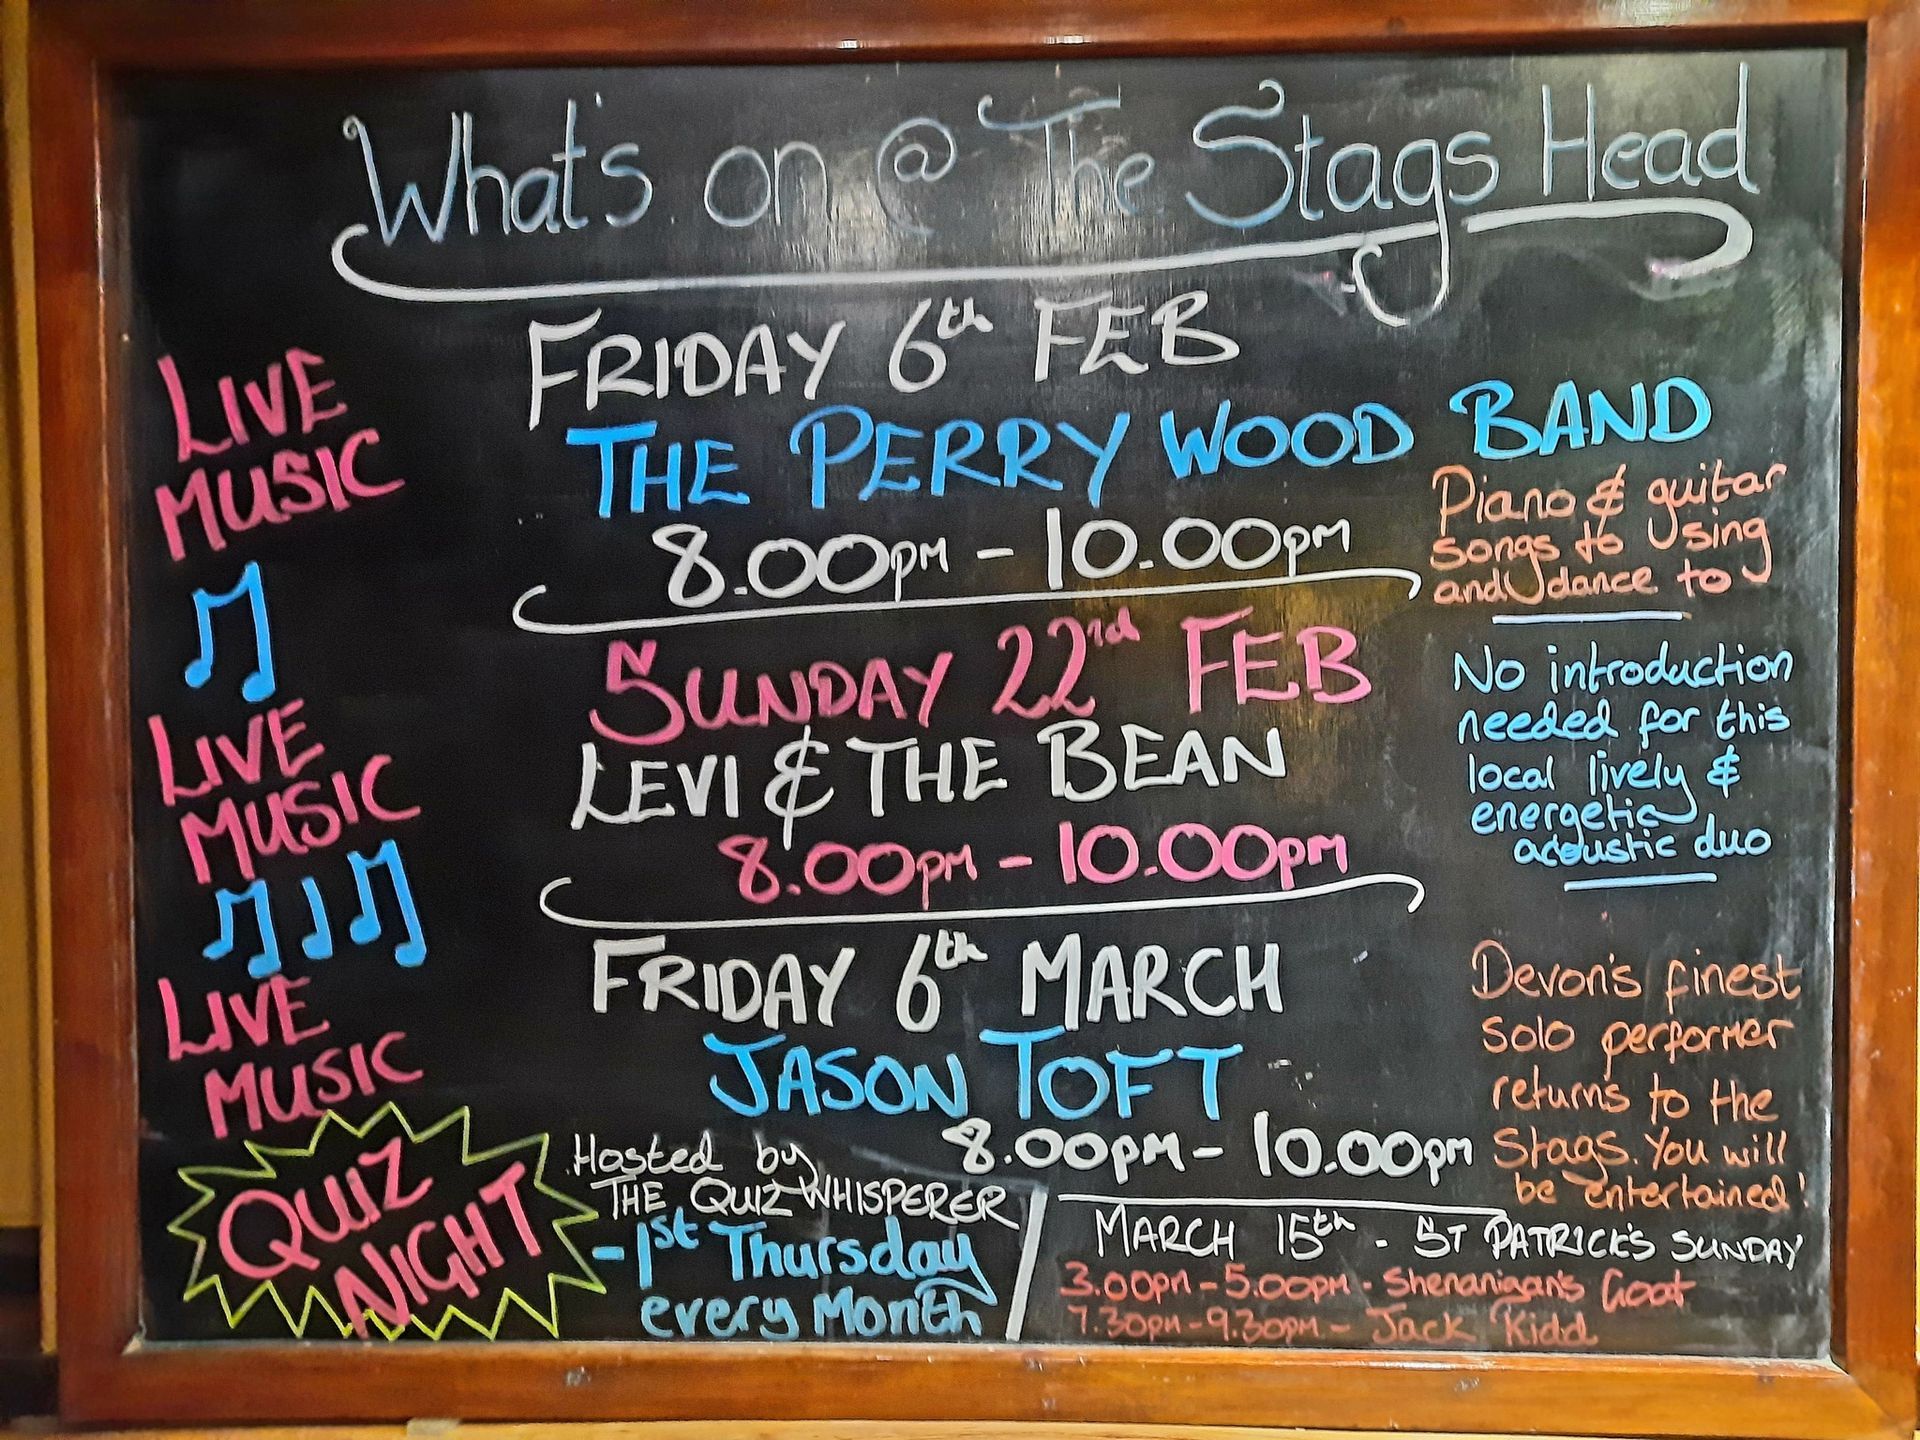 What's on @ The Stags Head
LIVE
MUSIC
FRIDAY 6th FEB
THE PERRY WOOD BAND
8.00pm - 10.00pm
Piano & guitar
songs to sing
and dance to
LIVE
MUSIC
SUNDAY 22nd FEB
LEVI & THE BEAN
8.00pm - 10.00pm
No introduction
needed for this
local lively &
energetic
acoustic duo
LIVE
MUSIC
FRIDAY 6th MARCH
JASON TOFT
8.00pm - 10.00pm
Devon's finest
solo performer
returns to the
Stags. You will
be entertained!
QUIZ
NIGHT
Hosted by
THE QUIZ WHISPERER
- 1st Thursday
every Month
MARCH 15th - ST PATRICK'S SUNDAY
3.00pm - 5.00pm - Shenanigan's Goat
7.30pm - 9.30pm - Jack Kidd